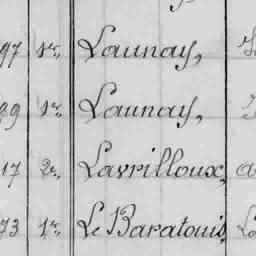 97 1er, Launay,
99 1er, Launay,
17 2e, Lavrilloux,
73 1er, Le Baratouis,